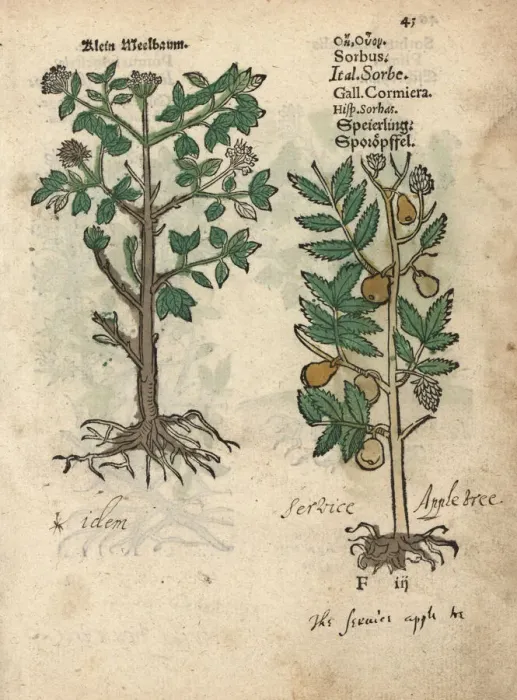 43
Klein Meelbaum.
Οὔη, Οὖον.
Sorbus.
Ital. Sorbe.
Gall. Cormiera.
Hiſp. Sorbas.
Speierling.
Sporöpffel.
idem
Service Apple tree.
F iij
The ſeruice apple